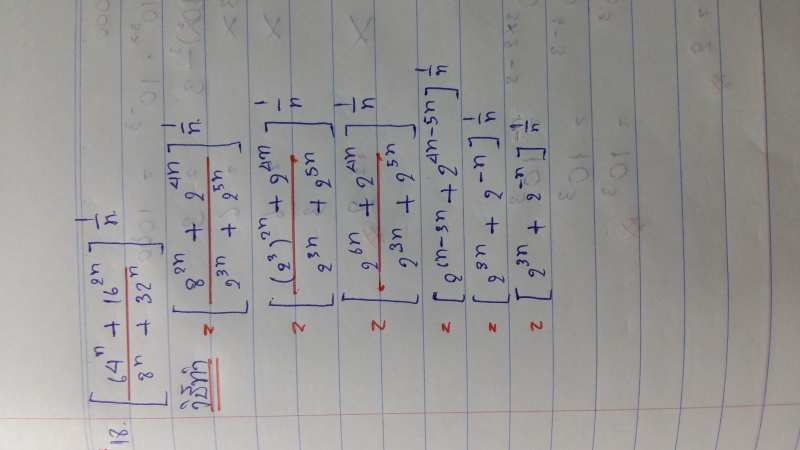 18. [64ⁿ + 16²ⁿ / 8ⁿ + 32ⁿ]^(1/n)
วิธีทำ = [8²ⁿ + 2⁴ⁿ / 2³ⁿ + 2⁵ⁿ]^(1/n)
= [(2³)²ⁿ + 2⁴ⁿ / 2³ⁿ + 2⁵ⁿ]^(1/n)
= [2⁶ⁿ + 2⁴ⁿ / 2³ⁿ + 2⁵ⁿ]^(1/n)
= [2⁶ⁿ⁻³ⁿ + 2⁴ⁿ⁻⁵ⁿ]^(1/n)
= [2³ⁿ + 2⁻ⁿ]^(1/n)
= [2³ⁿ + 2⁻ⁿ]^(1/n)